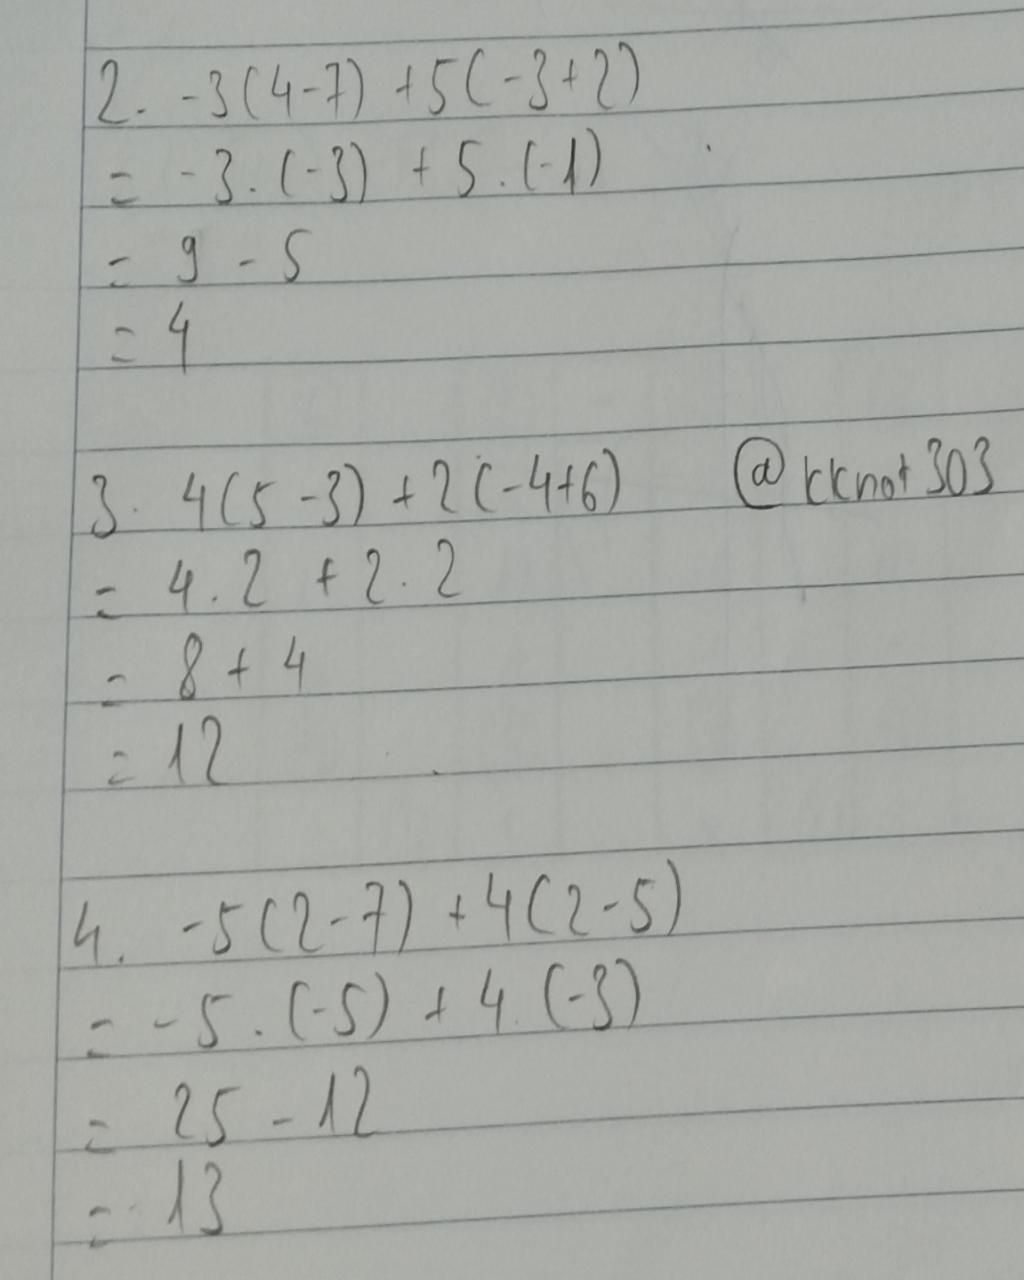 2. -3(4-7) +5(-3+2)
= -3.(-3) + 5.(-1)
= 9 - 5
= 4
3. 4(5-3)+2(-4+6) @kknot303
= 4.2 +2.2
= 8+4
= 12
4. -5(2-7) +4(2-5)
= -5.(-5) + 4.(-3)
= 25 - 12
= 13